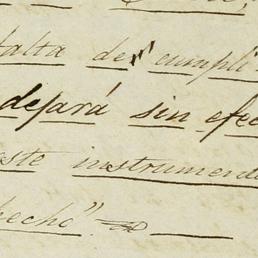 falta de cumpli-
dejará sin efec
este instrumen
hecho"